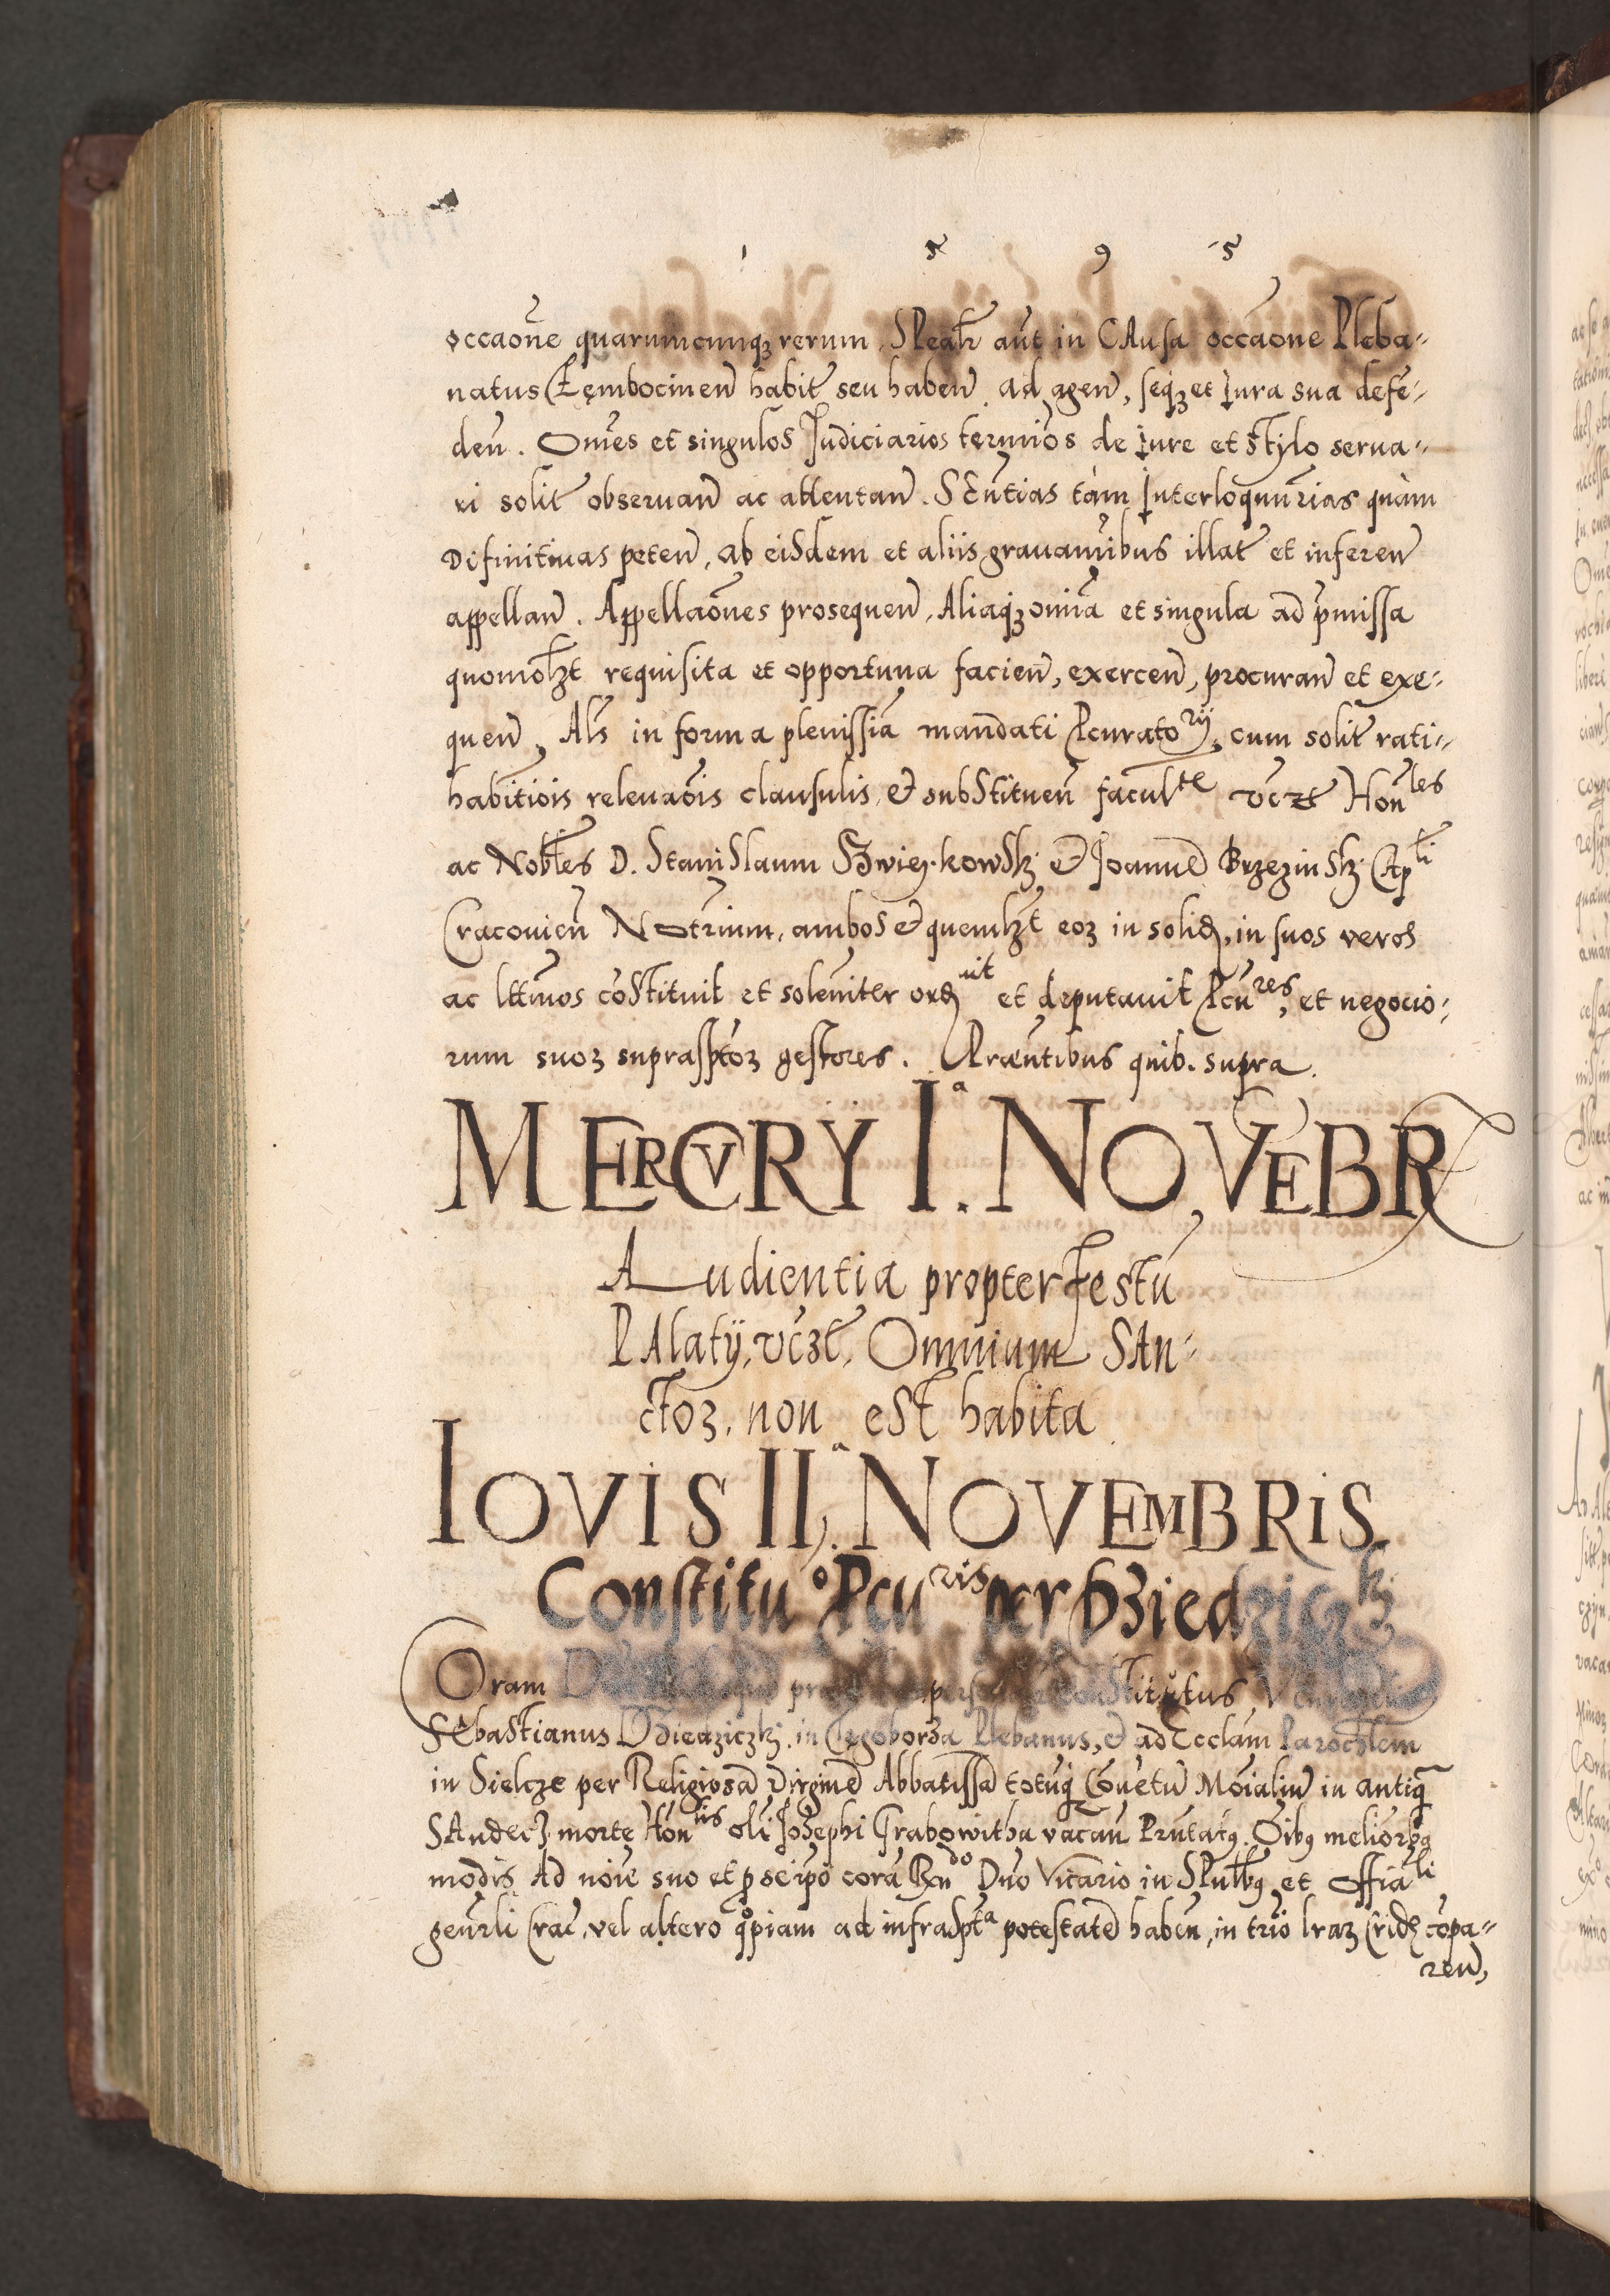 1 5 9 5
occaone quarumcunqȝ rerum, SPealr aut in CAusa occaone Pleba-
natus Łęmbocinen habit seu haben ad agen, seqȝ et Jura sua defe-
den. Omes et singulos Judiciarios termios de Jure et stylo serua-
ri solit obseruan ac attentan. SEntias tam Interloqunrias quàm
Difinitiuas peten, ab eisdem et aliis grauamibus illat et inferen
appellan. Appellaones prosequen, Aliaqȝ omia et singula ad pmissa
quomolȝt requisita et opportuna facien, exercen, procuran et exe-
quen, Als in forma plenissia mandati Pcuratorij, cum solit rati-
habitiois releuaois clausulis, et substituen facultte vczt Honles
ac Nobles D. Stanislaum Szwięykowskj et Joanne Brzezinskj Capli
Cracouien Notrium, ambos et quemlȝt eoȝ in solid, in suos veros
ac lttimos costituit et soleniter orduit et deputauit Pcures, et negocio-
rum suoȝ suprasptoȝ gestores. Praentibus quib. supra.
MERCVRY Ia. NOVEBR
Audientia propter Festu
PAlatij, vczt, Omnium SAn-
ctoȝ, non est habita
IOVIS IIa. NOVEMBRIS
Constituo Pcuris per Dziedziczkj
Coram personalr constitutus
SEbastianus Dziedziczkj in Czegoborza Plebanus, et ad Ecclam Parochlem
in Sielcze per Religiosa Virgine Abbatissa totuq Couetu Moialiu in antiq
SAndecz morte Honlis oli Josephi Grabowitha vacan Prntatꝰ. Oibꝰ melioribꝰ
modis Ad noie suo et p seipo cora Rndo Dno Vicario in SPutlbꝰ et Offiali
genrli Crac, vel altero qopiam ad infraspta potestate haben, in trio lraȝ Crid copa-
ren,